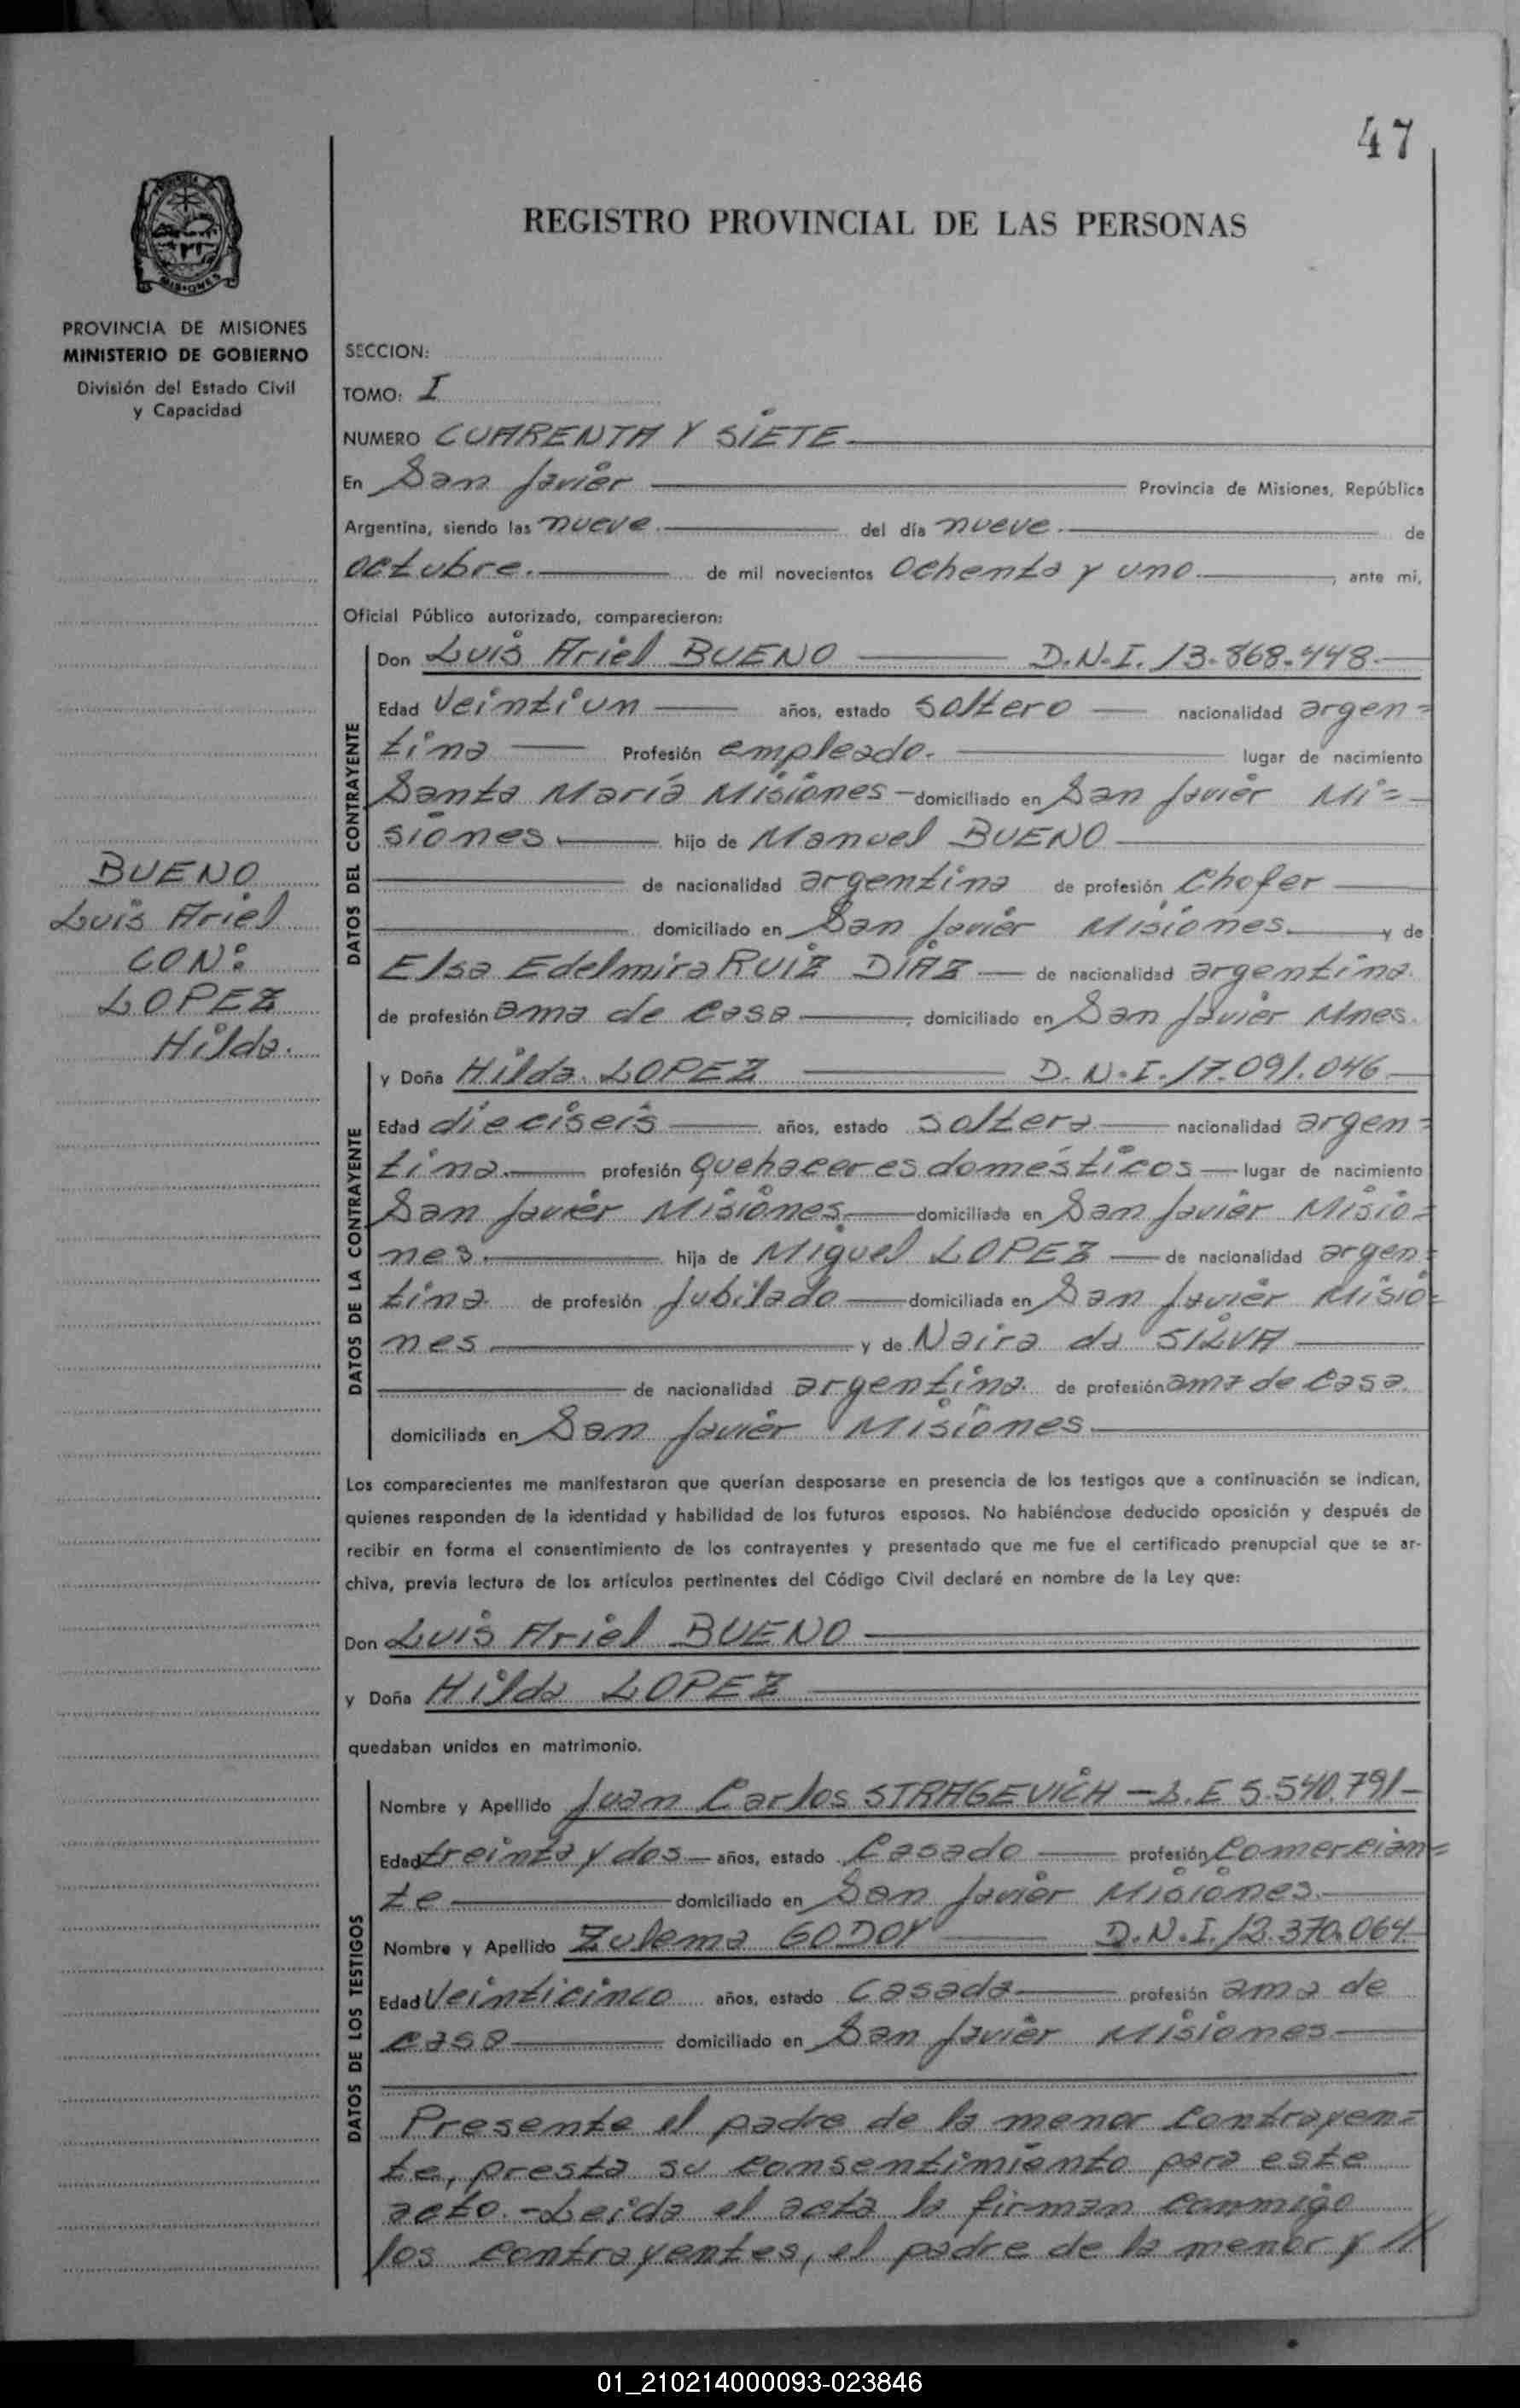 47
REGISTRO PROVINCIAL DE LAS PERSONAS
PROVINCIA DE MISIONES
MINISTERIO DE GOBIERNO
División del Estado Civil
y Capacidad
BUENO
Luis Ariel
CON:
LOPEZ
Hilda.
SECCION:
TOMO: I
NUMERO CUARENTA Y SIETE
En San Javier Provincia de Misiones, República
Argentina, siendo las nueve. del día nueve. de
octubre. de mil novecientos ochenta y uno. , ante mi,
Oficial Público autorizado, comparecieron:
DATOS DEL CONTRAYENTE
Don Luis Ariel BUENO D.N.I. 13.868.448
Edad veintiun años, estado soltero nacionalidad argen=
tina Profesión empleado. lugar de nacimiento
Santa María Misiones - domiciliado en San Javier Mi=
siones hijo de Manuel BUENO
de nacionalidad argentina de profesión chofer
domiciliado en San Javier Misiones. y de
Elsa Edelmira RUIZ DIAZ de nacionalidad argentina.
de profesión ama de casa , domiciliado en San Javier Mnes.
DATOS DE LA CONTRAYENTE
y Doña Hilda LOPEZ D.N.I. 17.091.046
Edad dieciseis años, estado soltera nacionalidad argen=
tina. profesión quehaceres domésticos lugar de nacimiento
San Javier Misiones. domiciliada en San Javier Misio=
nes. hija de Miguel LOPEZ de nacionalidad argen=
tina de profesión jubilado domiciliada en San Javier Misio=
nes y de Naira da SILVA
de nacionalidad argentina. de profesión ama de casa.
domiciliada en San Javier Misiones.
Los comparecientes me manifestaron que querían desposarse en presencia de los testigos que a continuación se indican,
quienes responden de la identidad y habilidad de los futuros esposos. No habiéndose deducido oposición y después de
recibir en forma el consentimiento de los contrayentes y presentado que me fue el certificado prenupcial que se ar-
chiva, previa lectura de los artículos pertinentes del Código Civil declaré en nombre de la Ley que:
Don Luis Ariel BUENO
y Doña Hilda LOPEZ
quedaban unidos en matrimonio.
DATOS DE LOS TESTIGOS
Nombre y Apellido Juan Carlos STRAGEVICH - L.E 5.540.791-
Edad treinta y dos años, estado casado profesión comercian=
te domiciliado en San Javier Misiones.
Nombre y Apellido Zulema GODOY D.N.I. 12.370.064
Edad veinticinco años, estado casada profesión ama de
casa domiciliado en San Javier Misiones
Presente el padre de la menor contrayen=
te, presta su consentimiento para este
acto. - Leida el acta la firman conmigo
los contrayentes, el padre de la menor y //
01_210214000093-023846